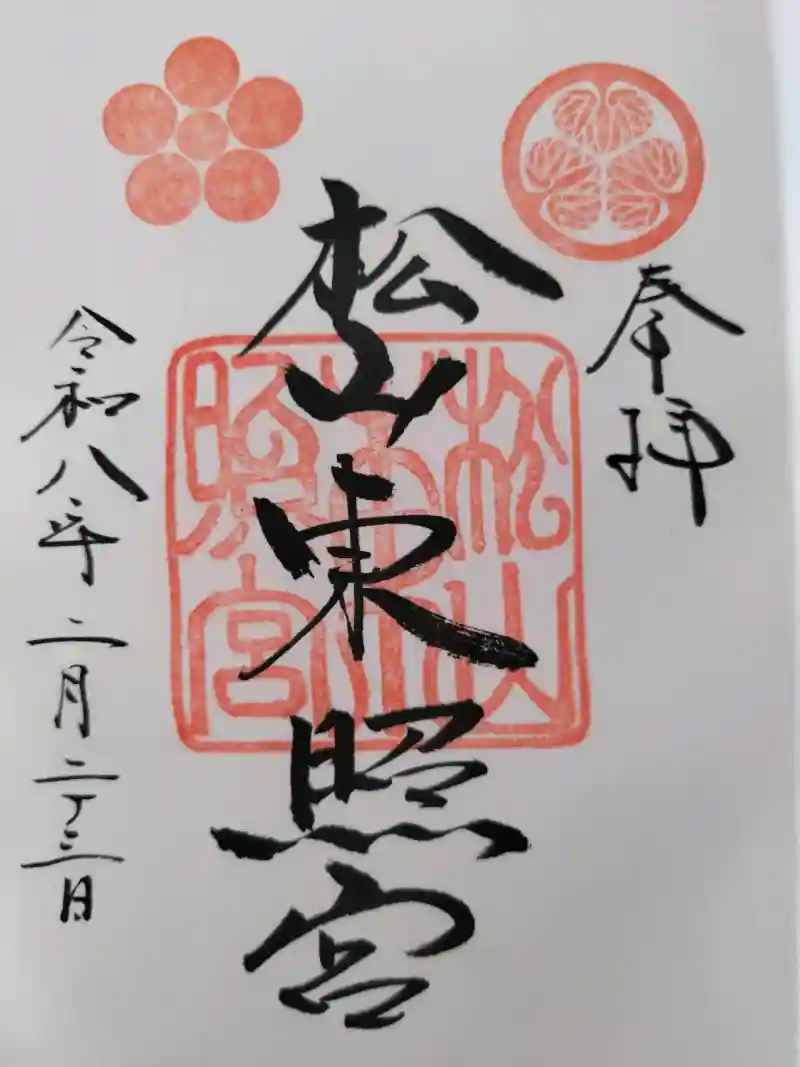 奉拝
松山東照宮
松山
東
照宮
令和八年二月二十三日